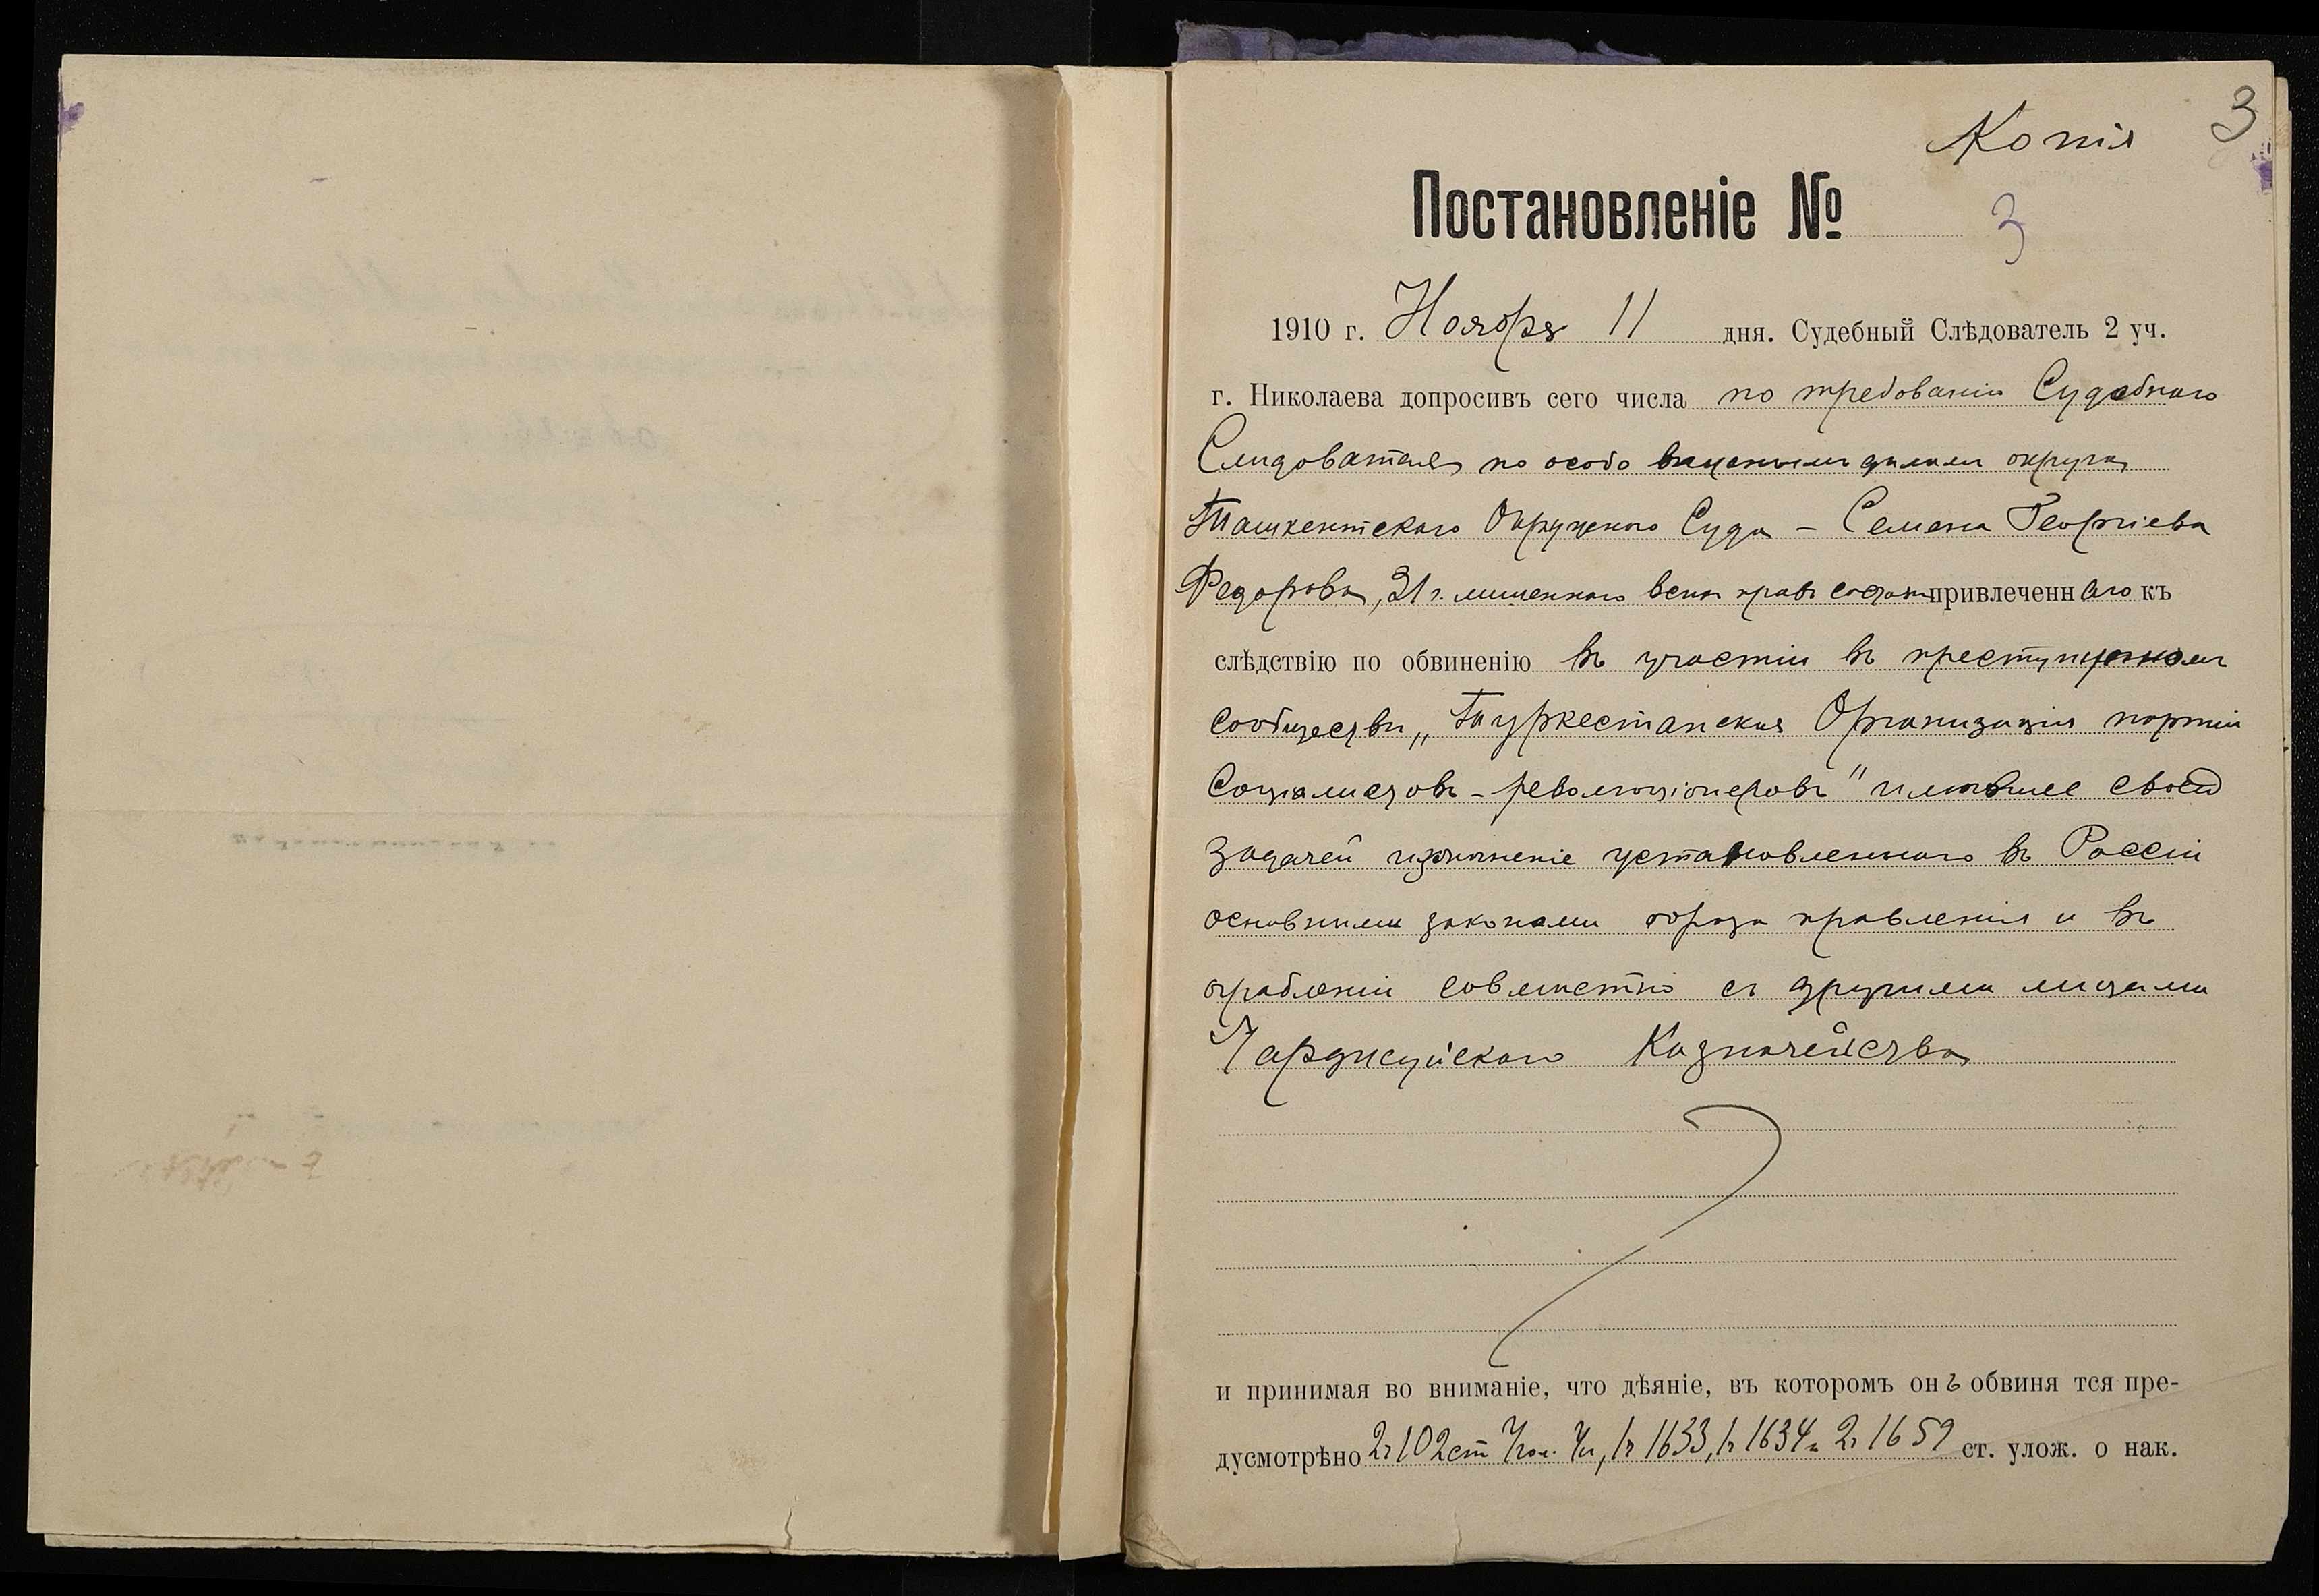 Копія
3
Постановленіе №
3
1910 г. Ноября 11 дня. Судебный Слѣдователь 2 уч.
г. Николаева допросивъ сего числа по требованію Судебнаго
Слидователя по особо важнымъ диламъ округа
Ташкентскаго Окружного Суда – Семена Георгіева
Федорова, 31 г. лишеннаго всихъ правъ состоян привлеченнаго къ
слѣдствію по обвиненію въ участіи въ преступномъ
сообществи „Туркестанская Организація партіи
Соціалистовъ-революціонеровъ" имѣвшее своей
задачей измѣненіе установленнаго въ Россіи
основными законами образа правленія и въ
ограбленіи совмистно съ другими лицами
Чарджуйскаго Казначейства
и принимая во вниманіе, что дѣяніе, въ которомъ онъ обвиня тся пре-
дусмотрѣно 2ч 102 ст Угол. Ул, 1ч 1633, 1ч 1634 и 2ч 1659 ст. улож. о нак.